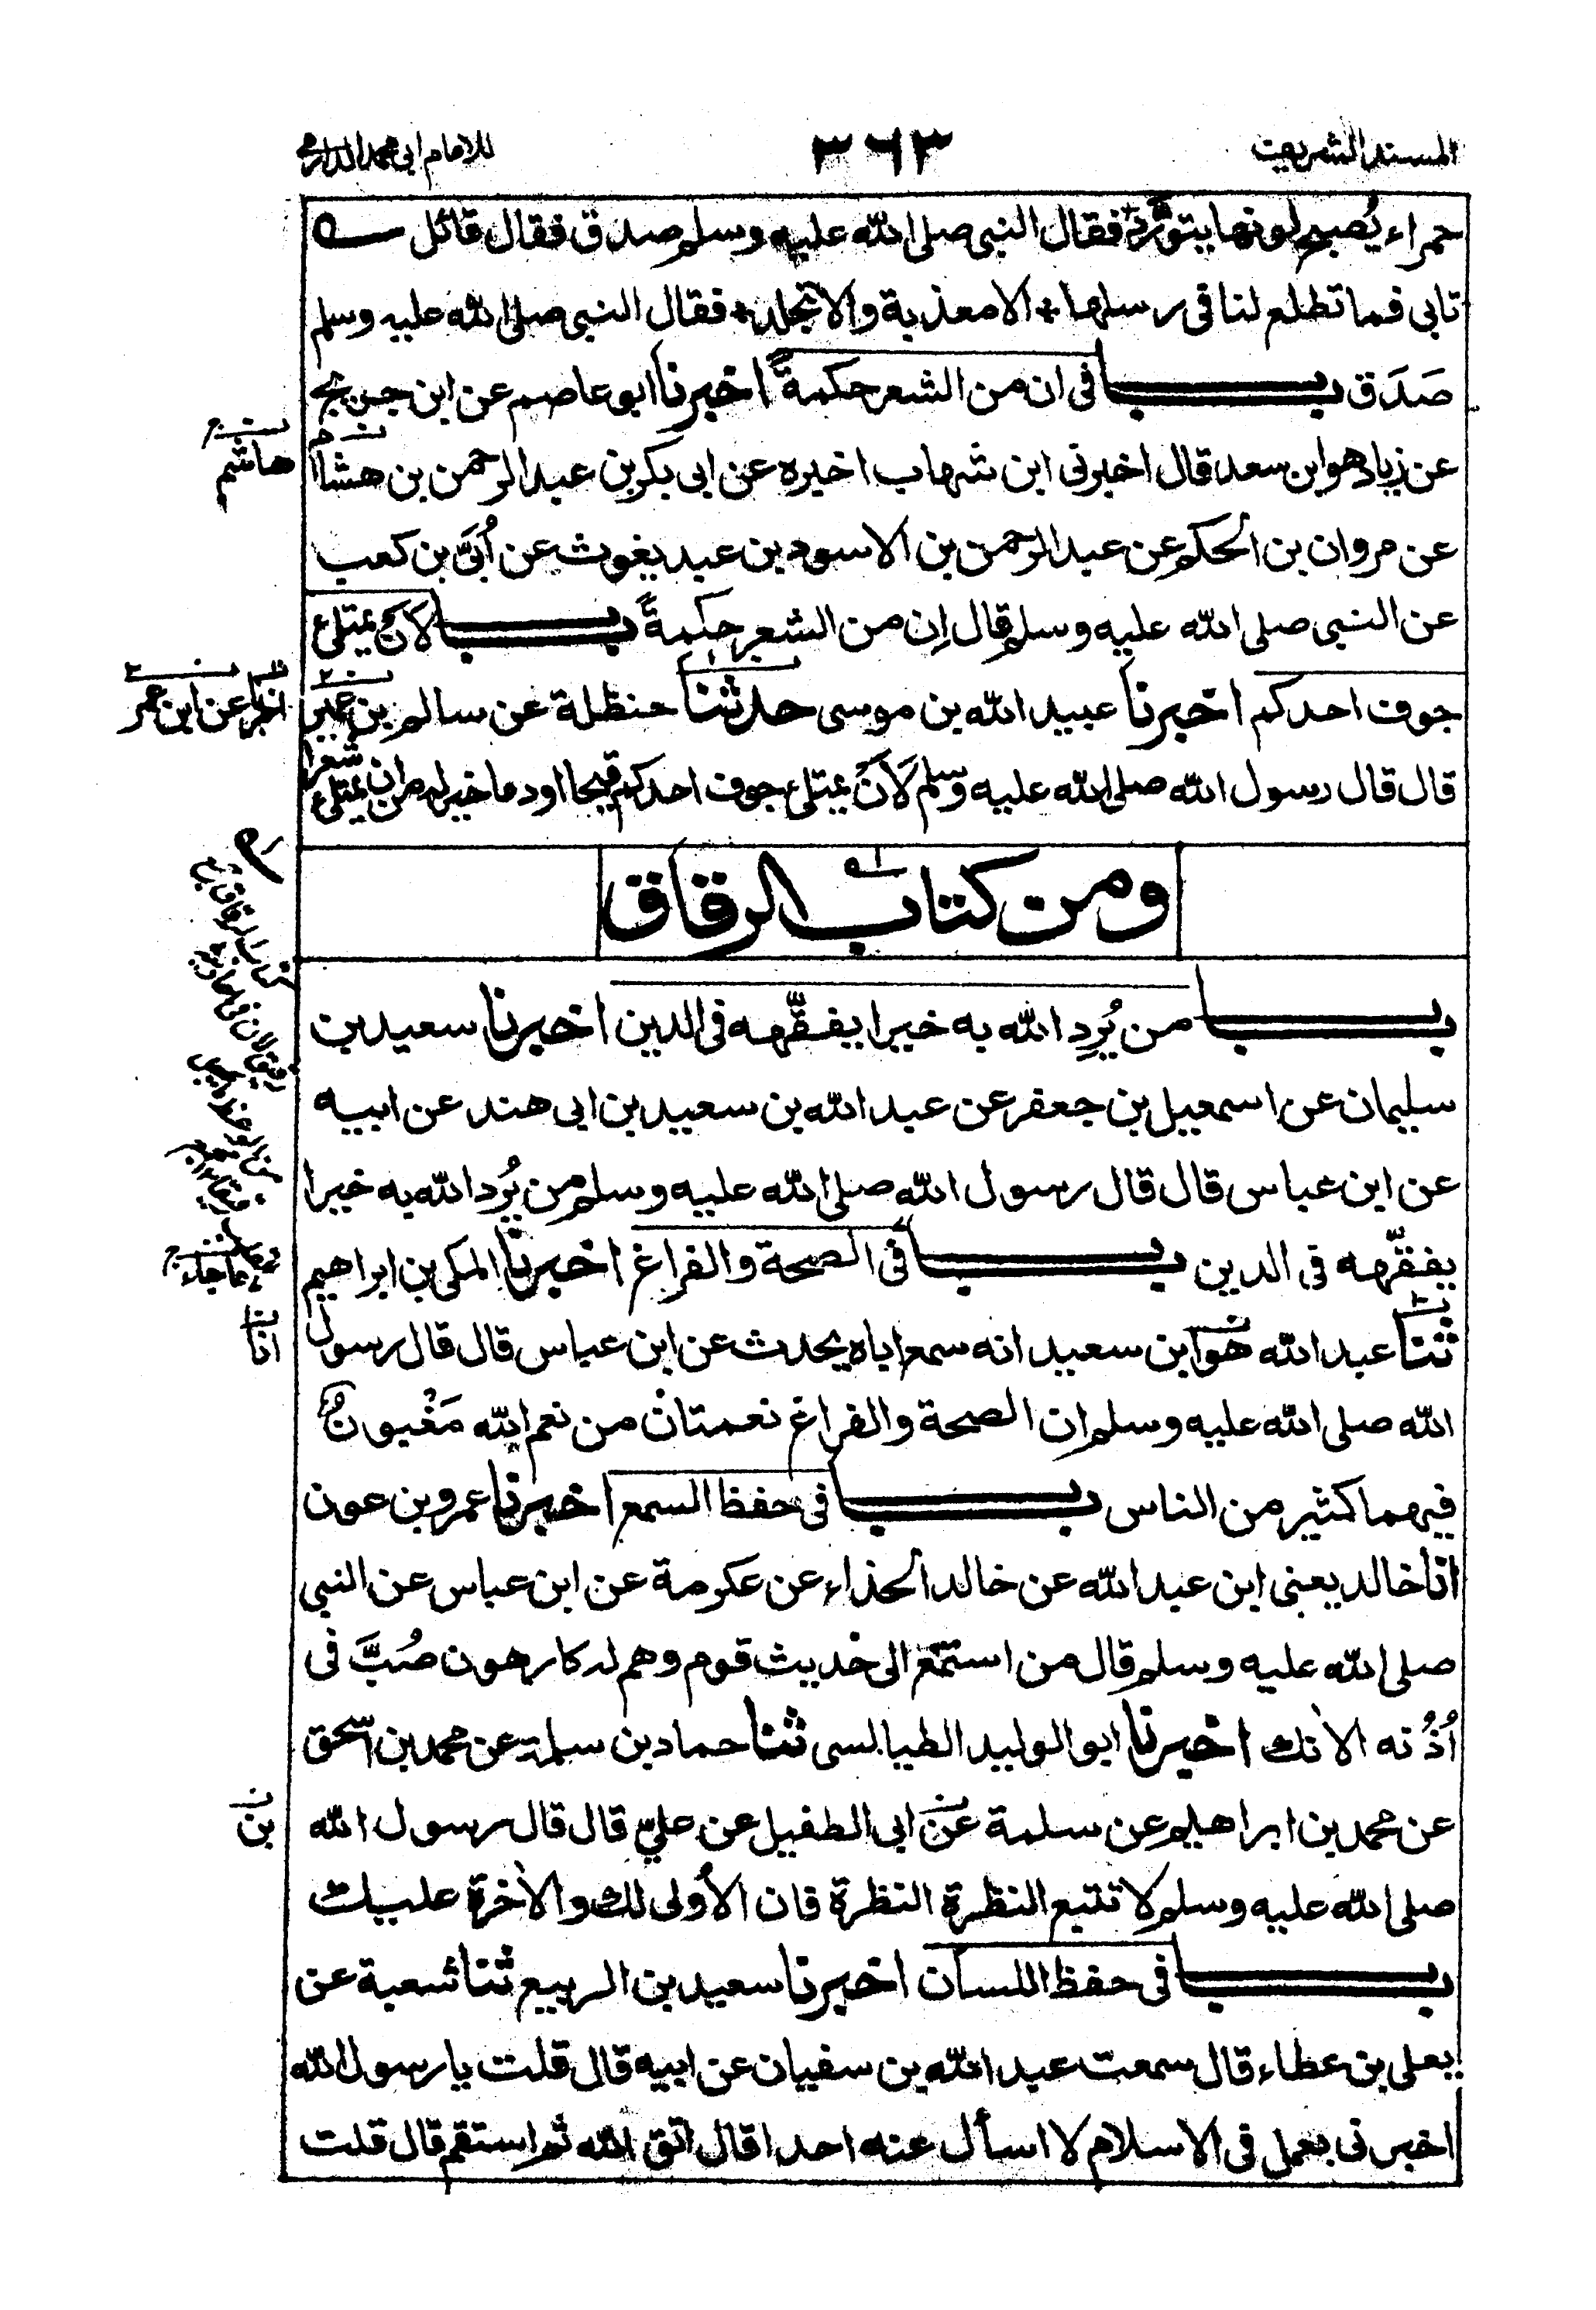 المسند الشريف ٣٦٣ للامام ابى محمد الدارمى
حمراء يُصبح لونها يتورّد فقال النبى صلى الله عليه وسلم صدق فقال قائل
تابى فما تطلع لنا فى رسلها * الا معذبة والا تجلد * فقال النبى صلى الله عليه وسلم
صَدَق باب فى ان من الشعر حكمةً اخبرنا ابو عاصم عن ابن جريج
عن زياد هو ابن سعد قال اخبرنى ابن شهاب اخبره عن ابى بكر بن عبد الرحمن بن هشام
هاشم
عن مروان بن الحكم عن عبد الرحمن بن الاسود بن عبد يغوث عن اُبَىّ بن كعب
عن النبى صلى الله عليه وسلم قال اِن من الشعر حكمةً باب لاَن يمتلئ
جوف احدكم اخبرنا عبيد الله بن موسى حدثنا حنظلة عن سالم بن عمير
انا عن ابن عمر
قال قال رسول الله صلى الله عليه وسلم لاَنْ يمتلئ جوف احدكم قيحا اودما خير له من ان يمتلئ شعرا
ومن كتاب الرقاق
باب من يُرِد الله به خيرا يفقّهه فى الدين اخبرنا سعيد بن
سليمان عن اسمعيل بن جعفر عن عبد الله بن سعيد بن ابى هند عن ابيه
عن ابن عباس قال قال رسول الله صلى الله عليه وسلم من يُرِد الله به خيرا
يفقّهه فى الدين باب فى الصحة والفراغ اخبرنا المكى بن ابراهيم
ما جاء
ثنا عبد الله هو ابن سعيد انه سمع اباه يحدث عن ابن عباس قال قال رسول
انا
الله صلى الله عليه وسلم ان الصحة والفراغ نعمتان من نعم الله مَغْبونٌ
فيهما كثير من الناس باب فى حفظ السمع اخبرنا عمرو بن عون
انا خالد يعنى ابن عبد الله عن خالد الحذاء عن عكرمة عن ابن عباس عن النبى
صلى الله عليه وسلم قال من استمع الى حديث قوم وهم له كارهون صُبَّ فى
اُذُنه الاٰنك اخبرنا ابو الوليد الطيالسى ثنا حماد بن سلمة عن محمد بن اسحق
عن محمد بن ابراهيم عن سلمة عن ابى الطفيل عن علىّ قال قال رسول الله
بن
صلى الله عليه وسلم لا تتبع النظرة النظرة فان الاُولى لك والاٰخرة عليك
باب فى حفظ اللسان اخبرنا سعيد بن الربيع ثنا شعبة عن
يعلى بن عطاء قال سمعت عبد الله بن سفيان عن ابيه قال قلت يا رسول الله
اخبرنى بعمل فى الاسلام لا اسأل عنه احدا قال اتق الله ثم استقم قال قلت